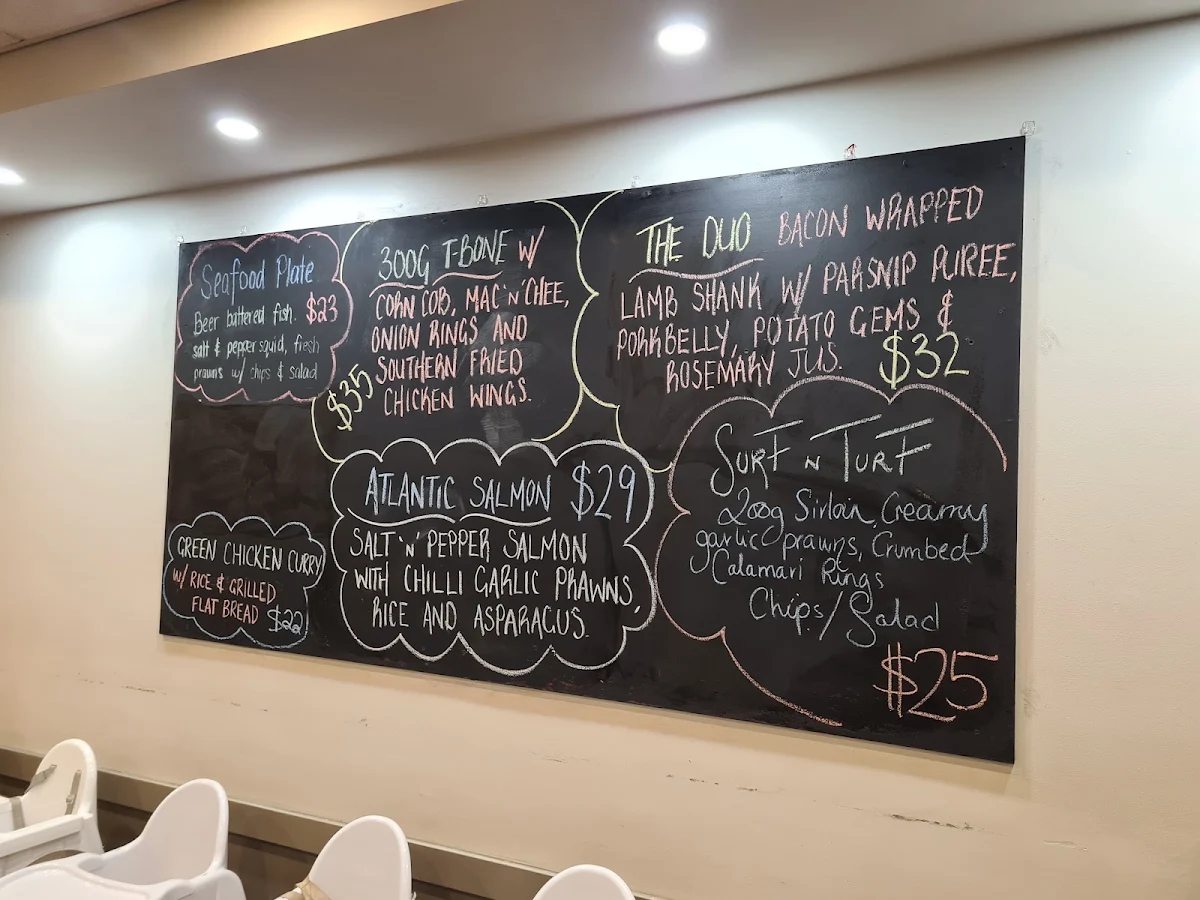 Seafood Plate
Beer battered fish. $23
salt & pepper squid, fresh
prawns w/ chips & salad
300G T-BONE W/
CORN COB, MAC'N'CHEE,
ONION RINGS AND
SOUTHERN FRIED
CHICKEN WINGS.
$35
THE DUO BACON WRAPPED
LAMB SHANK W/ PARSNIP PUREE,
PORKBELLY, POTATO GEMS &
ROSEMARY JUS. $32
GREEN CHICKEN CURRY
W/ RICE & GRILLED
FLAT BREAD $22
ATLANTIC SALMON $29
SALT 'N' PEPPER SALMON
WITH CHILLI GARLIC PRAWNS,
RICE AND ASPARAGUS.
SURF N TURF
200g Sirloin, Creamy
garlic prawns, Crumbed
Calamari Rings
Chips/Salad
$25